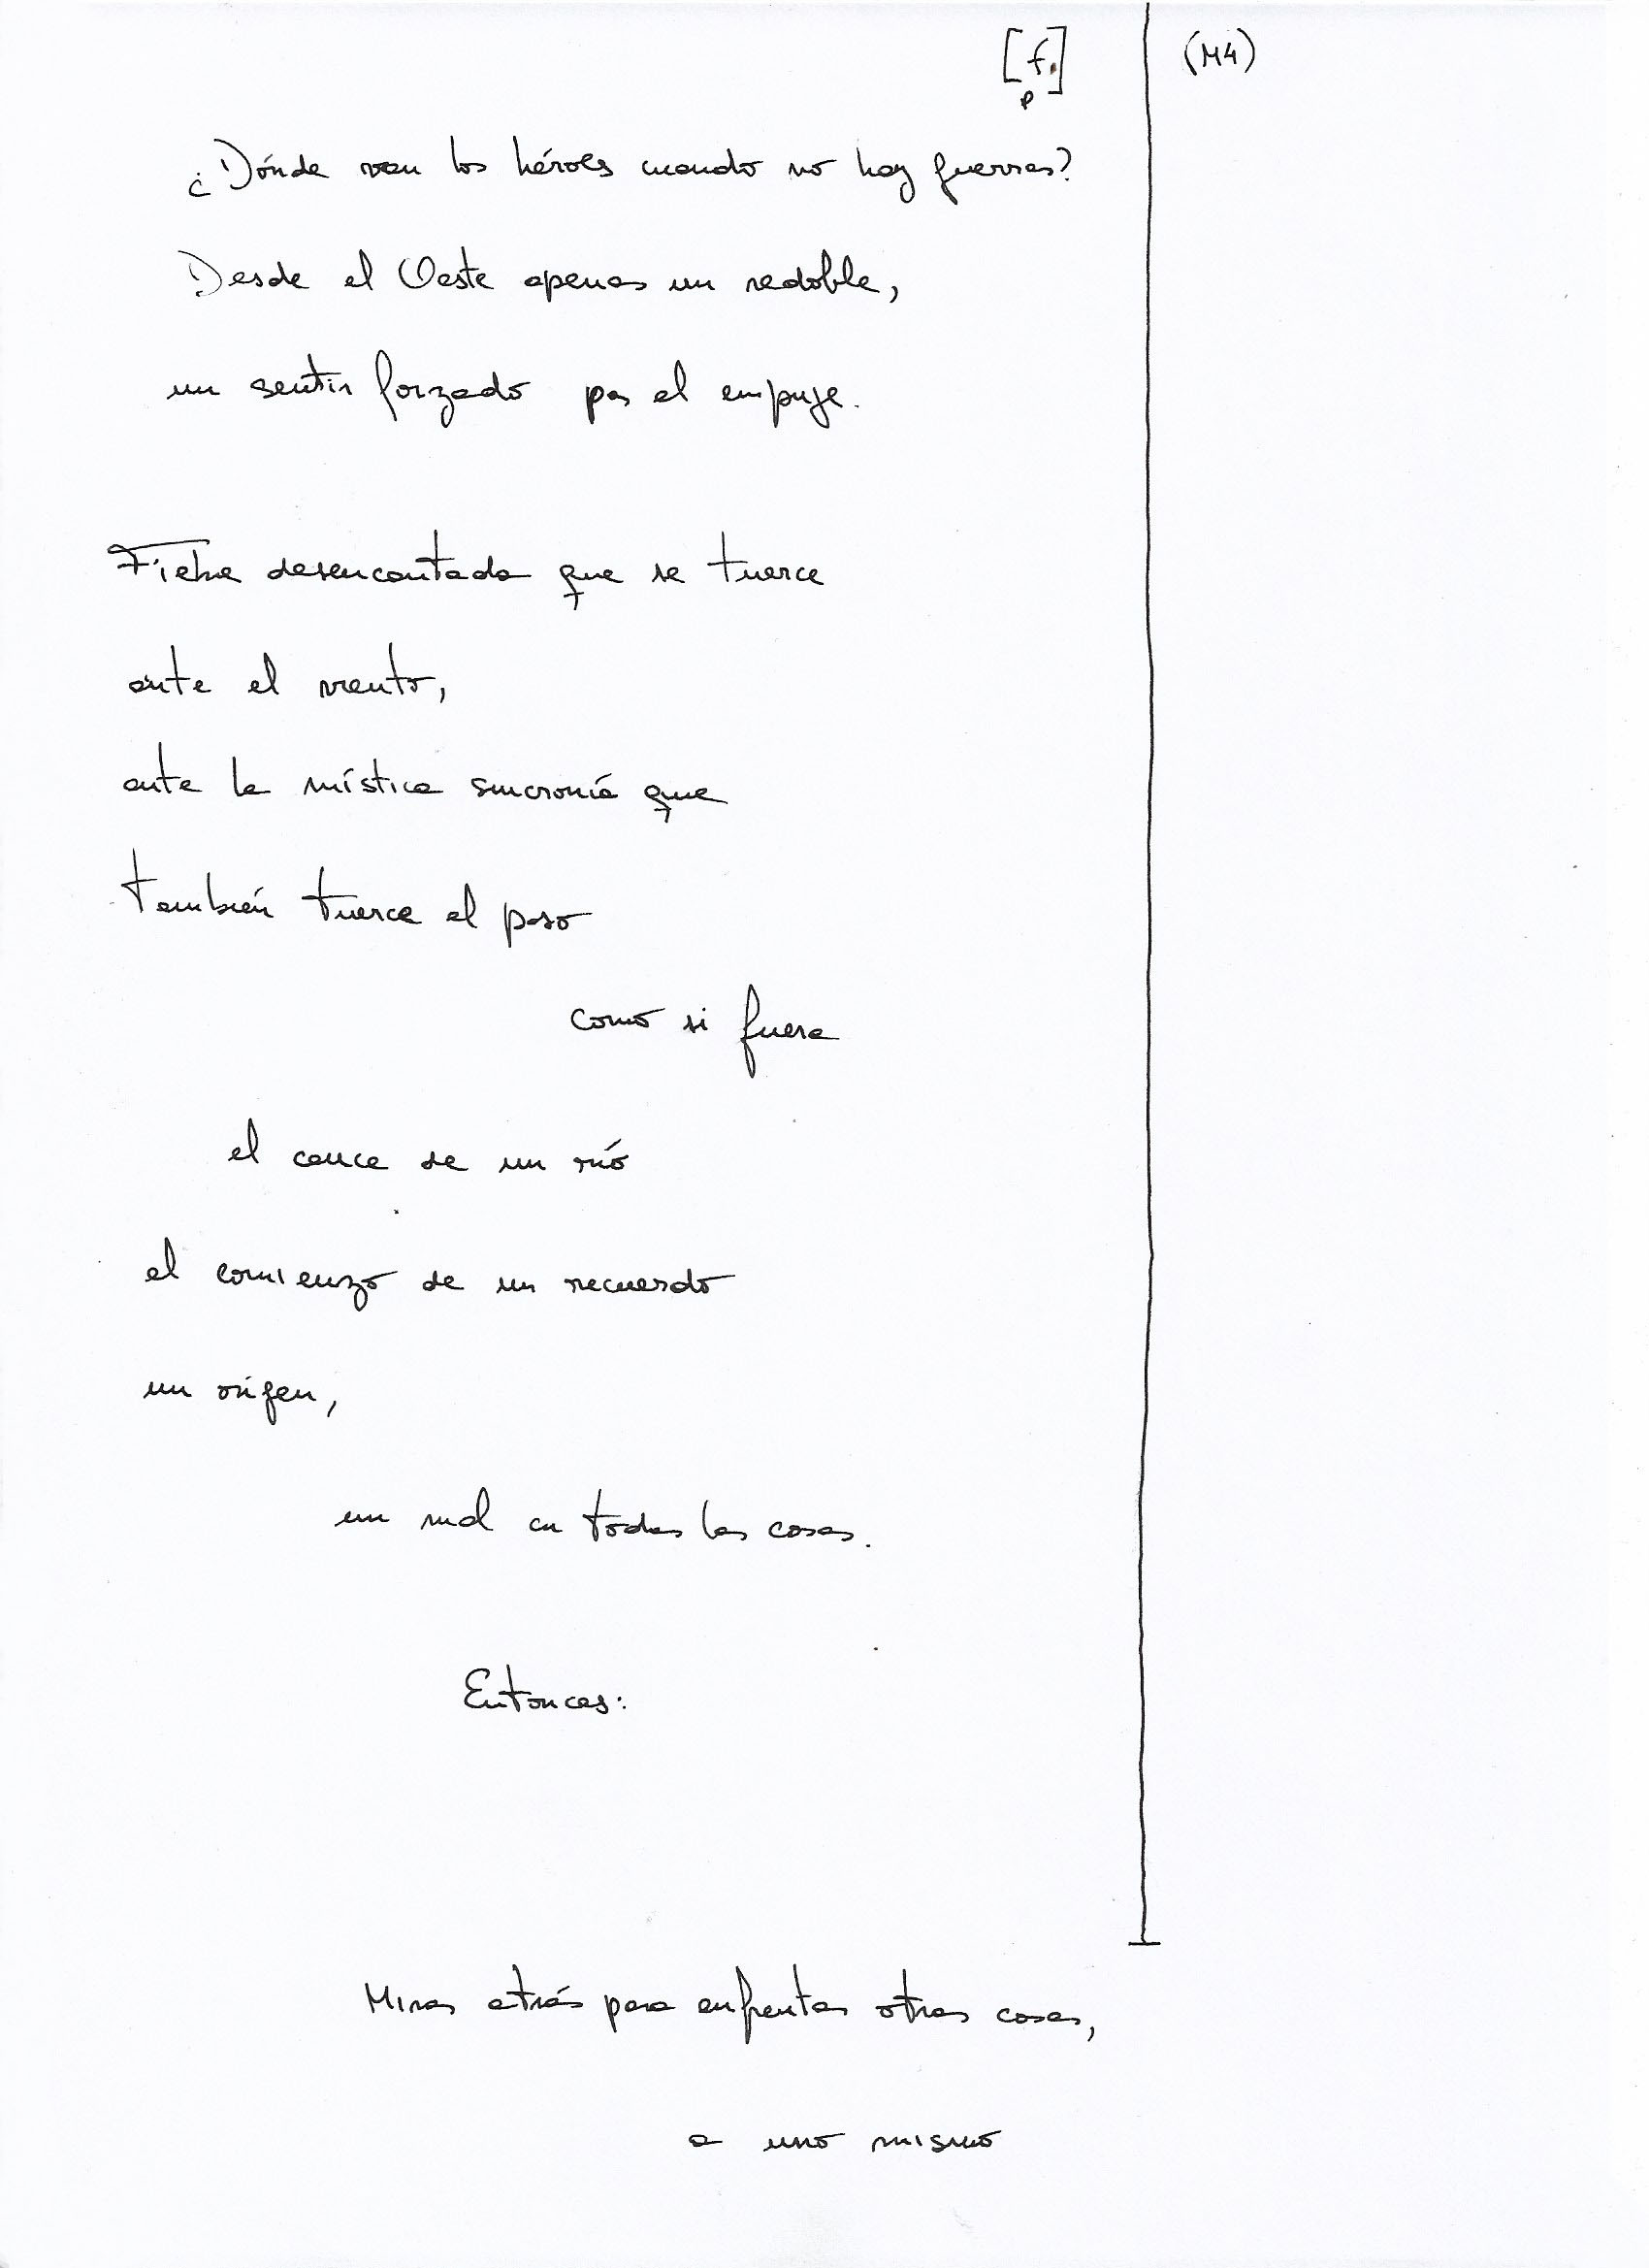 [f.] (M4)
p
¿Dónde van los héroes cuando no hay guerras?
Desde el Oeste apenas un redoble,
un sentir forzado por el empuje.
Fiebre desencantada que se tuerce
ante el viento,
ante la mística sincronía que
también tuerce el paso
como si fuera
el cauce de un río
el comienzo de un recuerdo
un origen,
un mal en todas las cosas.
Entonces:
Mirar atrás para enfrentar otras cosas,
a uno mismo